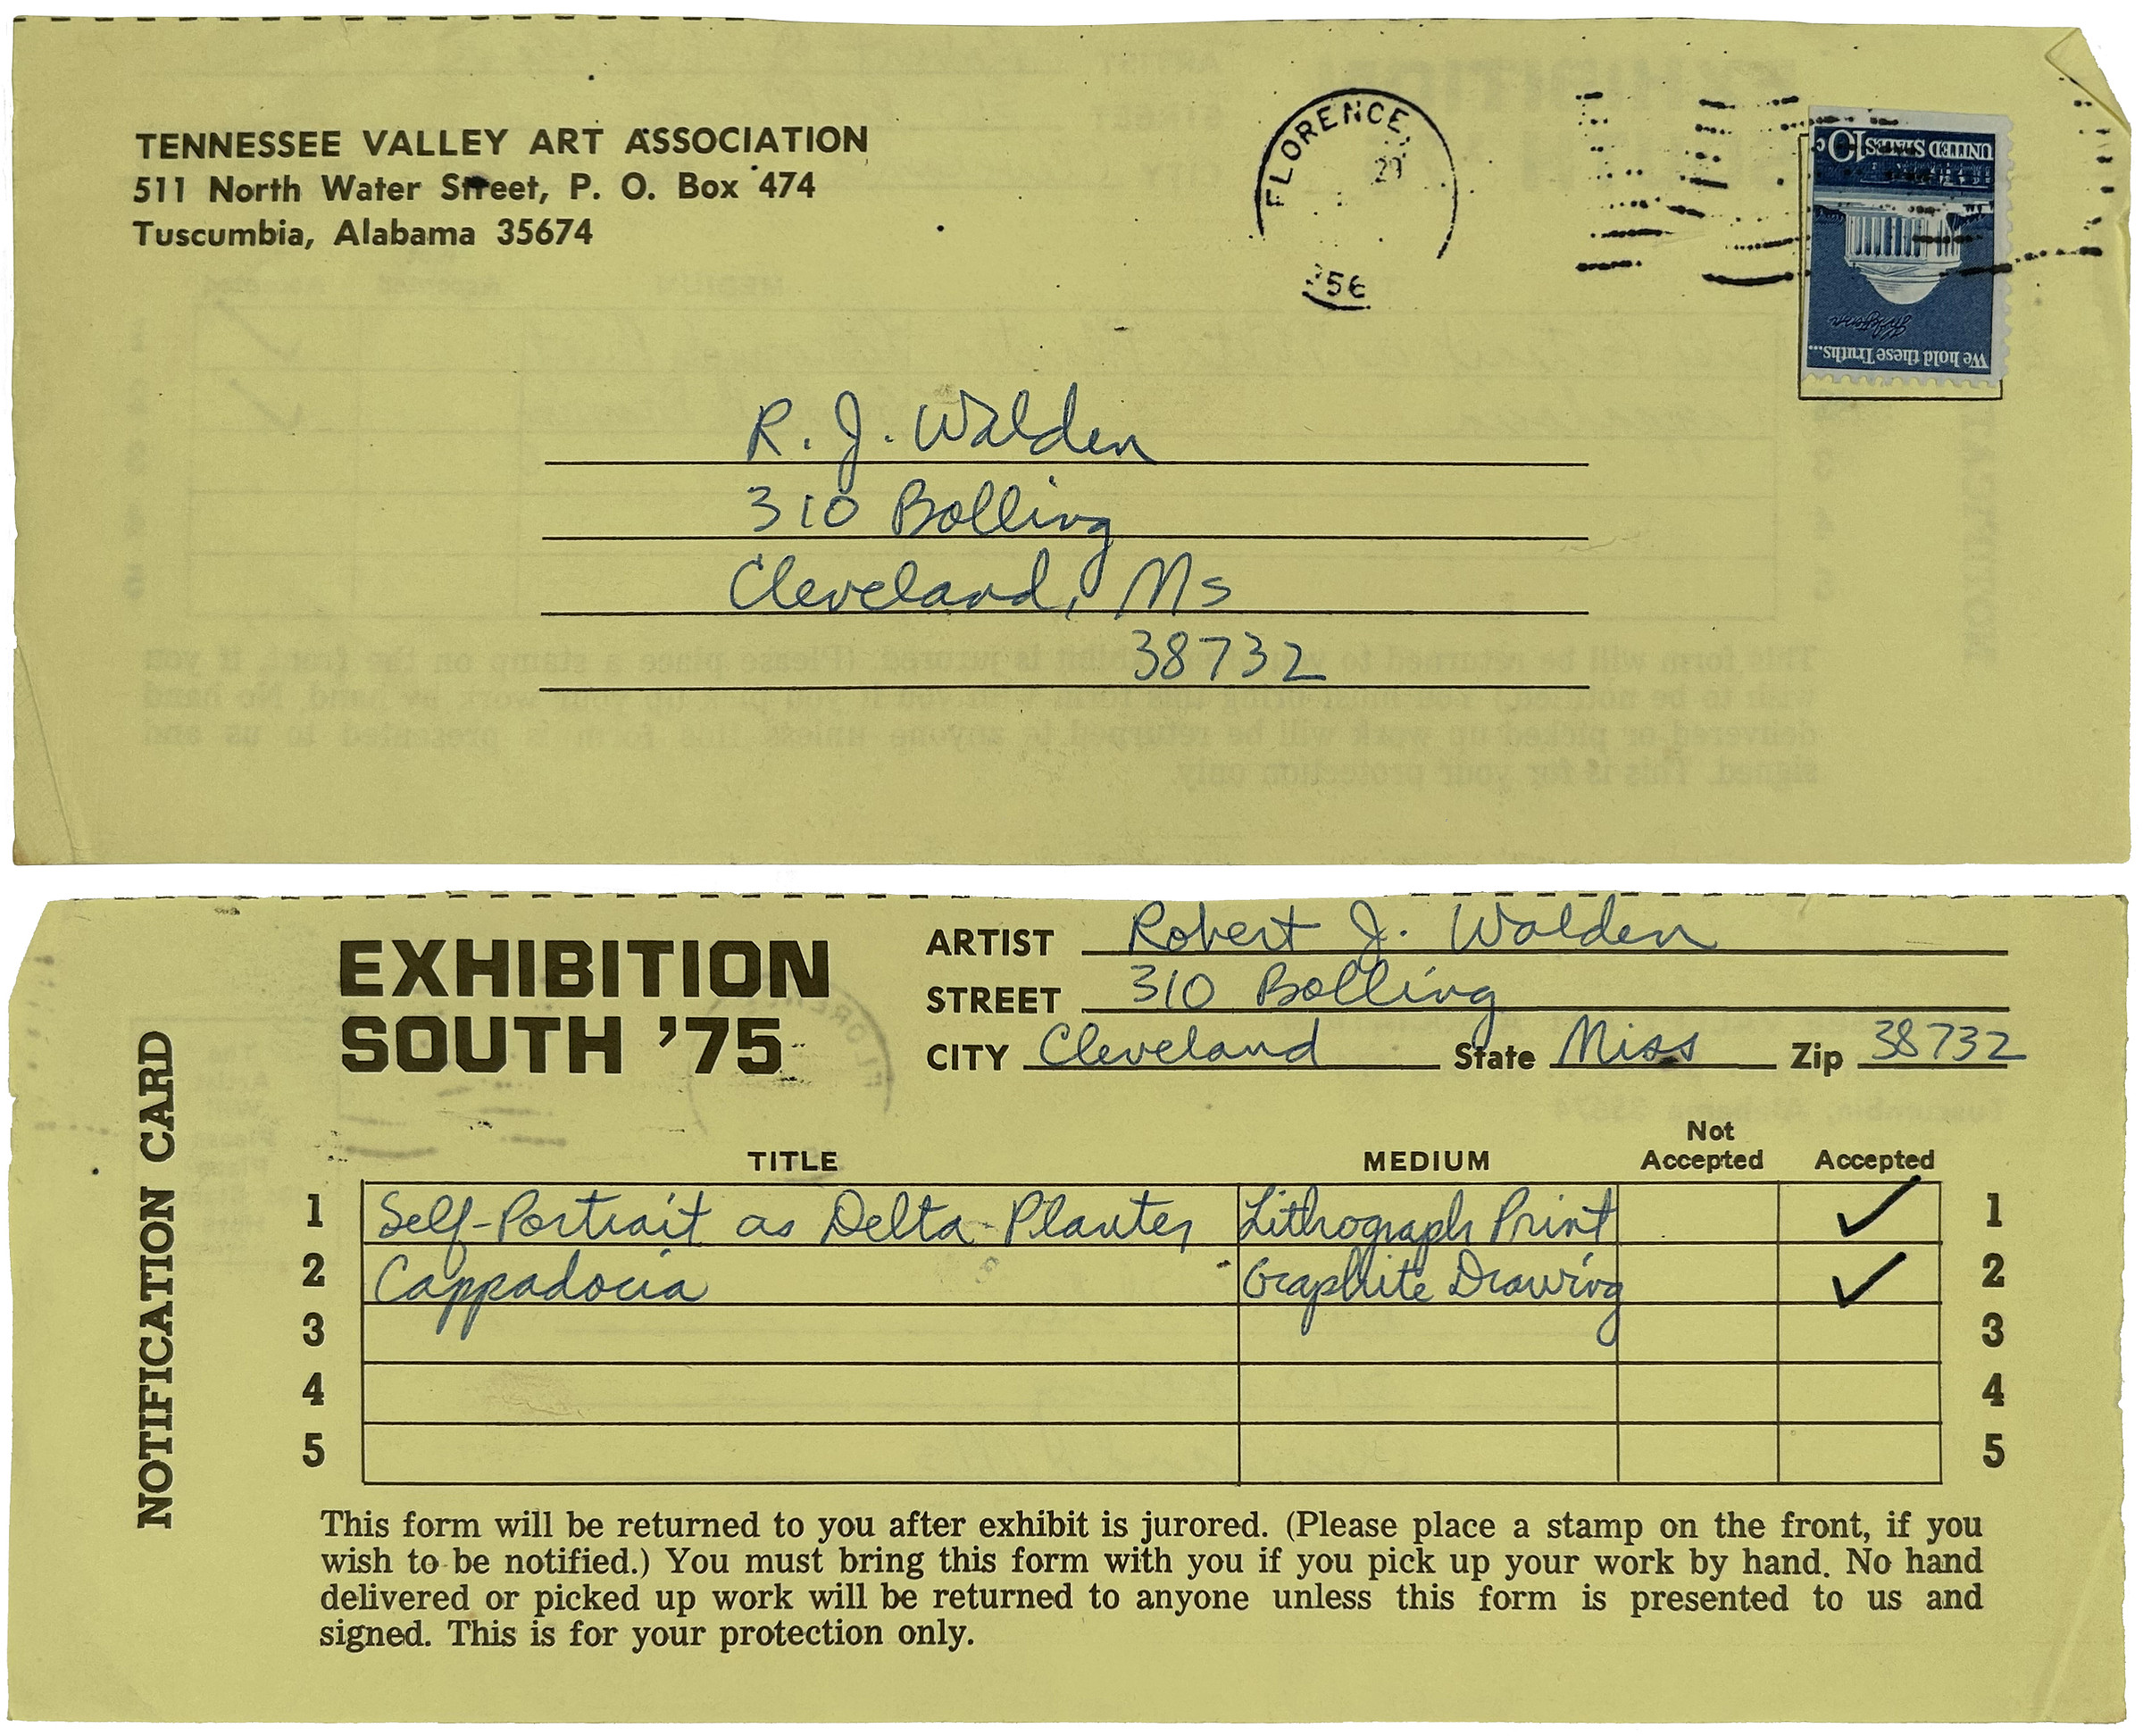 TENNESSEE VALLEY ART ASSOCIATION
511 North Water Street, P. O. Box 474
Tuscumbia, Alabama 35674
FLORENCE,
29
356
UNITED STATES 10c
We hold these Truths...
R. J. Walden
310 Bolling
Cleveland, Ms
38732
EXHIBITION
SOUTH '75
NOTIFICATION CARD
ARTIST Robert J. Walden
STREET 310 Bolling
CITY Cleveland State Miss Zip 38732
TITLE MEDIUM Not Accepted Accepted
1 Self-Portrait as Delta Planter Lithograph Print ✓ 1
2 Cappadocia Graphite Drawing ✓ 2
3 3
4 4
5 5
This form will be returned to you after exhibit is jurored. (Please place a stamp on the front, if you
wish to be notified.) You must bring this form with you if you pick up your work by hand. No hand
delivered or picked up work will be returned to anyone unless this form is presented to us and
signed. This is for your protection only.